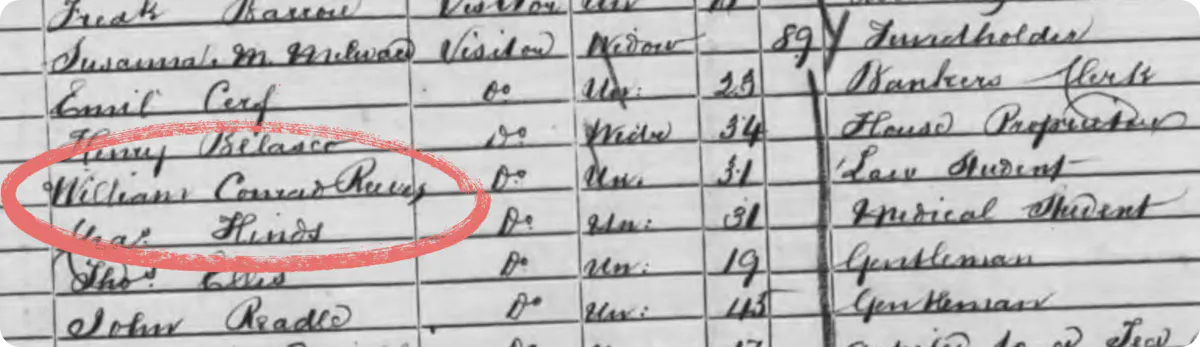 Barrow Visitor Un
Susannah M. Milward Visitor Widow 89 Fundholder
Emil Cerf Do Un: 23 Bankers Clerk
Henry Belasco Do Wide 34 House Proprietor
William Conrad Reeves Do Un. 31 Law Student
Chas. Hinds Do Un: 31 Medical Student
Thos. Ellis Do Un: 19 Gentleman
John Do Un: 45 Gentleman